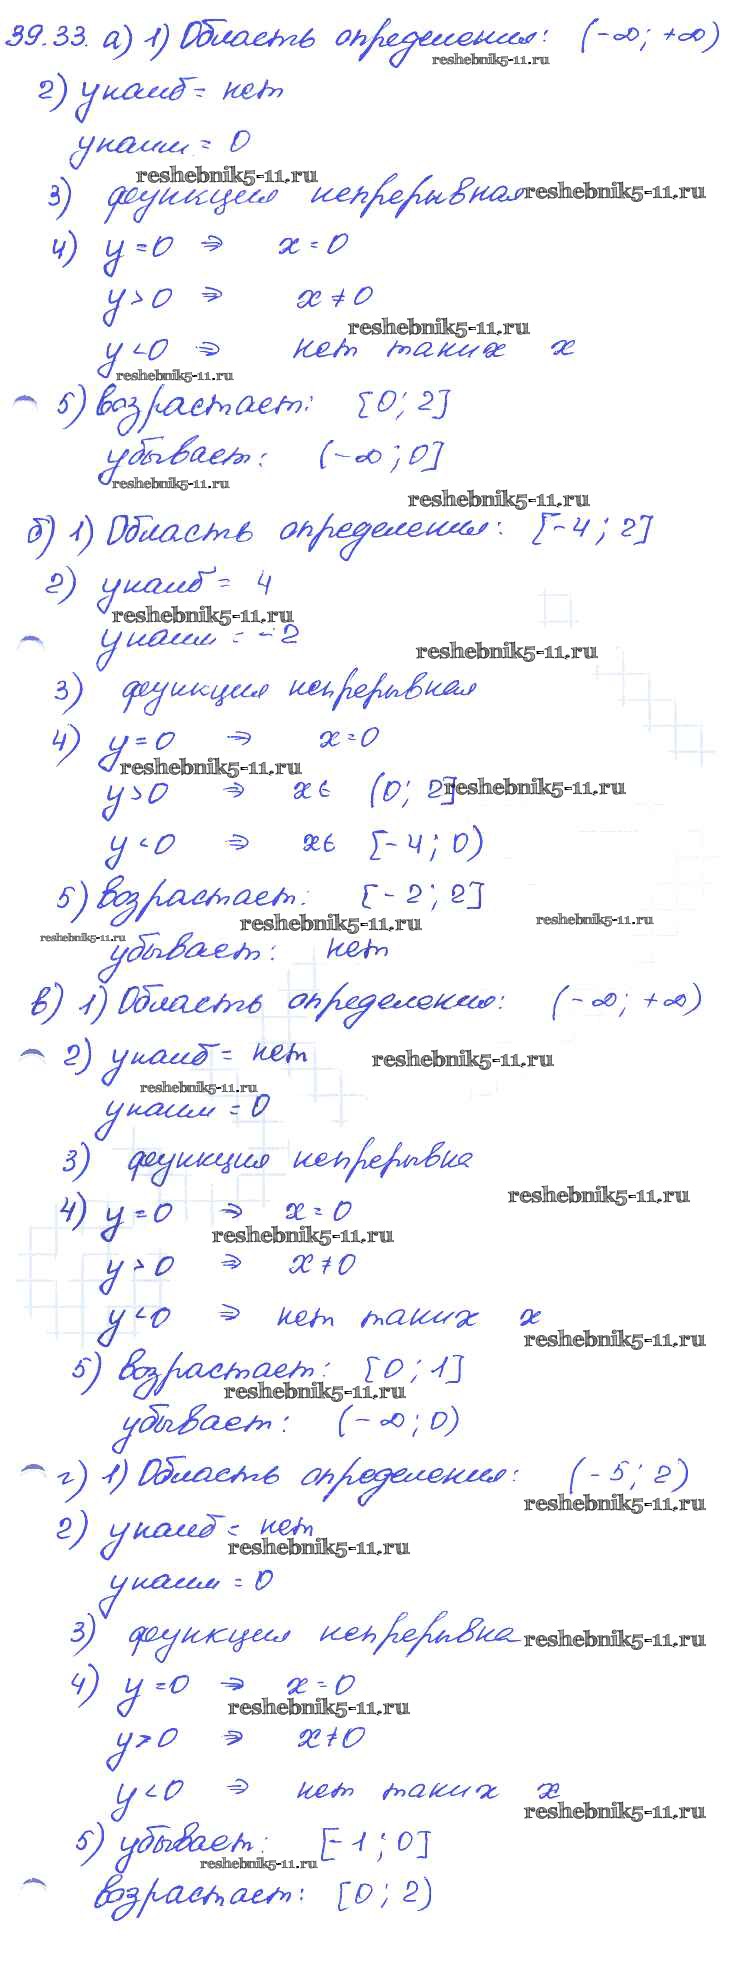 39.33. а) 1) Область определения: (-∞; +∞)
reshebnik5-11.ru
2) yнаиб = нет
yнаим = 0
reshebnik5-11.ru
3) функция непрерывная
reshebnik5-11.ru
4) y=0 ⇒ x=0
y>0 ⇒ x≠0
reshebnik5-11.ru
y<0 ⇒ нет таких x
reshebnik5-11.ru
5) возрастает: [0; 2]
убывает: (-∞; 0]
reshebnik5-11.ru
reshebnik5-11.ru
б) 1) Область определения: [-4; 2]
2) yнаиб = 4
reshebnik5-11.ru
yнаим = -2
reshebnik5-11.ru
3) функция непрерывная
4) y=0 ⇒ x=0
reshebnik5-11.ru
y>0 ⇒ x∈ (0; 2]
reshebnik5-11.ru
y<0 ⇒ x∈ [-4; 0)
5) возрастает: [-2; 2]
reshebnik5-11.ru
reshebnik5-11.ru
reshebnik5-11.ru
убывает: нет
в) 1) Область определения: (-∞; +∞)
2) yнаиб = нет
reshebnik5-11.ru
reshebnik5-11.ru
yнаим = 0
3) функция непрерывна
reshebnik5-11.ru
4) y=0 ⇒ x=0
reshebnik5-11.ru
y>0 ⇒ x≠0
y<0 ⇒ нет таких x
reshebnik5-11.ru
5) возрастает: [0; 1]
reshebnik5-11.ru
убывает: (-∞; 0)
г) 1) Область определения: (-5; 2)
reshebnik5-11.ru
2) yнаиб = нет
reshebnik5-11.ru
yнаим = 0
3) функция непрерывна
reshebnik5-11.ru
4) y=0 ⇒ x=0
reshebnik5-11.ru
y>0 ⇒ x≠0
y<0 ⇒ нет таких x
reshebnik5-11.ru
5) убывает: [-1; 0]
reshebnik5-11.ru
возрастает: [0; 2)